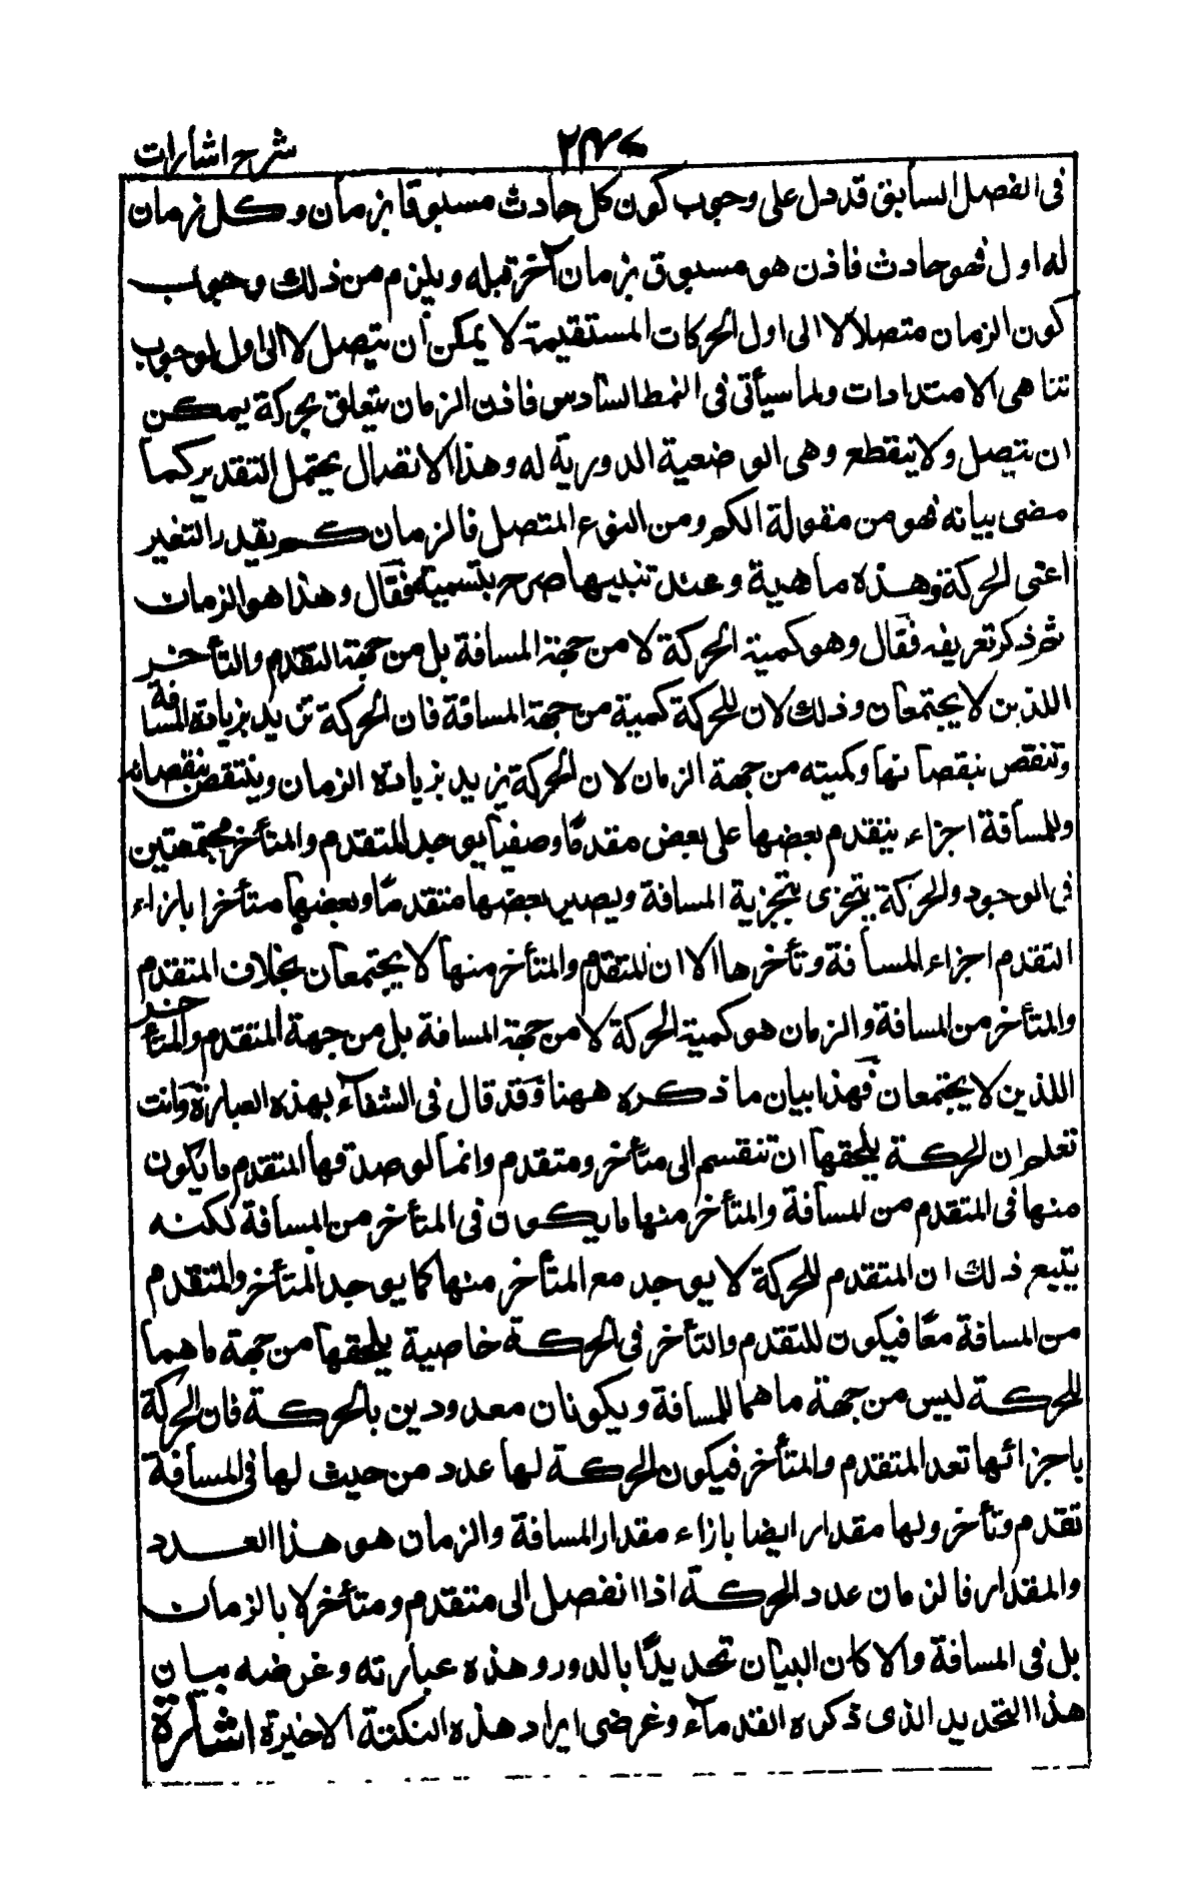 شرح اشارات
فى الفصل السابق قد دل على وجوب كون كل حادث مسبوقا بزمان وكل زمان
له اول فهو حادث فاذن هو مسبوق بزمان آخر قبله ويلزم من ذلك وجوب
كون الزمان متصلا لا الى اول الحركات المستقيمة لا يمكن أن يتصل لا الى اول لوجوب
تناهى الامتدادات ولما سيأتى فى النمط السادس فاذن الزمان يتعلق بحركة يمكن
ان يتصل ولا ينقطع وهى الوضعية الدورية له وهذا الاتصال يحتمل التقدير كما
مضى بيانه فهو من مقولة الكم ومن النوع المتصل فالزمان كم يقدر التغير
اعنى الحركة وهذه ماهية وعند تنبيها صرح بتسميته فقال وهذا هو الزمان
ثم ذكر تعريفه فقال وهو كمية الحركة لا من جهة المسافة بل من جهة التقدم والتأخر
اللذين لا يجتمعان وذلك لان للحركة كمية من جهة المسافة فان الحركة تزيد بزيادة المسافة
وتنقص بنقصانها وكميته من جهة الزمان لان الحركة تزيد بزيادة الزمان وينتقص بنقصانه
وللمسافة اجزاء يتقدم بعضها على بعض مقدمًا وصفيا يوجد المتقدم والمتأخر مجتمعتين
فى الوجود والحركة يتجزى بتجزية المسافة ويصير بعضها متقدمًا وبعضها متأخرا بازاء
التقدم اجزاء المسافة وتأخرها الا ان للمتقدم والمتأخر منها لا يجتمعان بخلاف المتقدم
والمتأخر من المسافة والزمان هو كمية الحركة لا من جهة المسافة بل من جهة المتقدم والمتأخر
اللذين لا يجتمعان فهذا بيان ما ذكره ههنا وقد قال فى الشفاء بهذه العبارة وانت
تعلم ان الحركة يلحقها ان تنقسم الى متأخر ومتقدم وانما لوصدقها المتقدم ما يكون
منها فى المتقدم من المسافة والمتأخر منها ما يكون فى المتأخر من المسافة لكنه
يتبع ذلك ان المتقدم للحركة لا يوجد مع المتأخر منها كما يوجد المتأخر والمتقدم
من المسافة معًا فيكون للتقدم والتأخر فى الحركة خاصية يلحقها من جهة ما هما
للحركة ليس من جهة ما هما للمسافة ويكونان معدودين بالحركة فان الحركة
باجزائها تعد المتقدم والمتأخر فيكون الحركة لها عدد من حيث لها فى المسافة
تقدم وتأخر ولها مقدار ايضا بازاء مقدار المسافة والزمان هو هذا العدد
والمقدار فالزمان عدد الحركة اذا انفصل الى متقدم ومتأخر لا بالزمان
بل فى المسافة والا كان البيان تحديدًا بالدور وهذه عبارته وغرضه بيان
هذا التحديد الذى ذكره القدماء وغرضى ايراد هذه النكتة الاخيرة اشارة